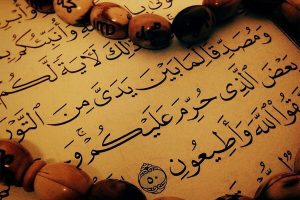 وَأُنَبِّئُكُم
ذَٰلِكَ لَآيَةً لَّكُمْ
وَمُصَدِّقًا لِّمَا بَيْنَ يَدَيَّ مِنَ التَّوْر
بَعْضَ الَّذِي حُرِّمَ عَلَيْكُمْ وَ
تَّقُوا اللَّهَ وَأَطِيعُونِ ٥٠